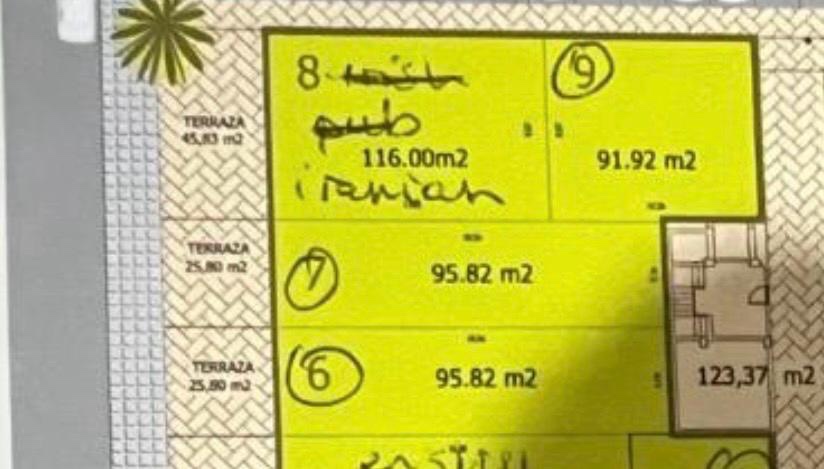 8 irish
9
TERRAZA
45,83 m2
pub
116.00m2
91.92 m2
iranian
TERRAZA
25,80 m2
7
95.82 m2
TERRAZA
25,80 m2
6
95.82 m2
123,37 m2